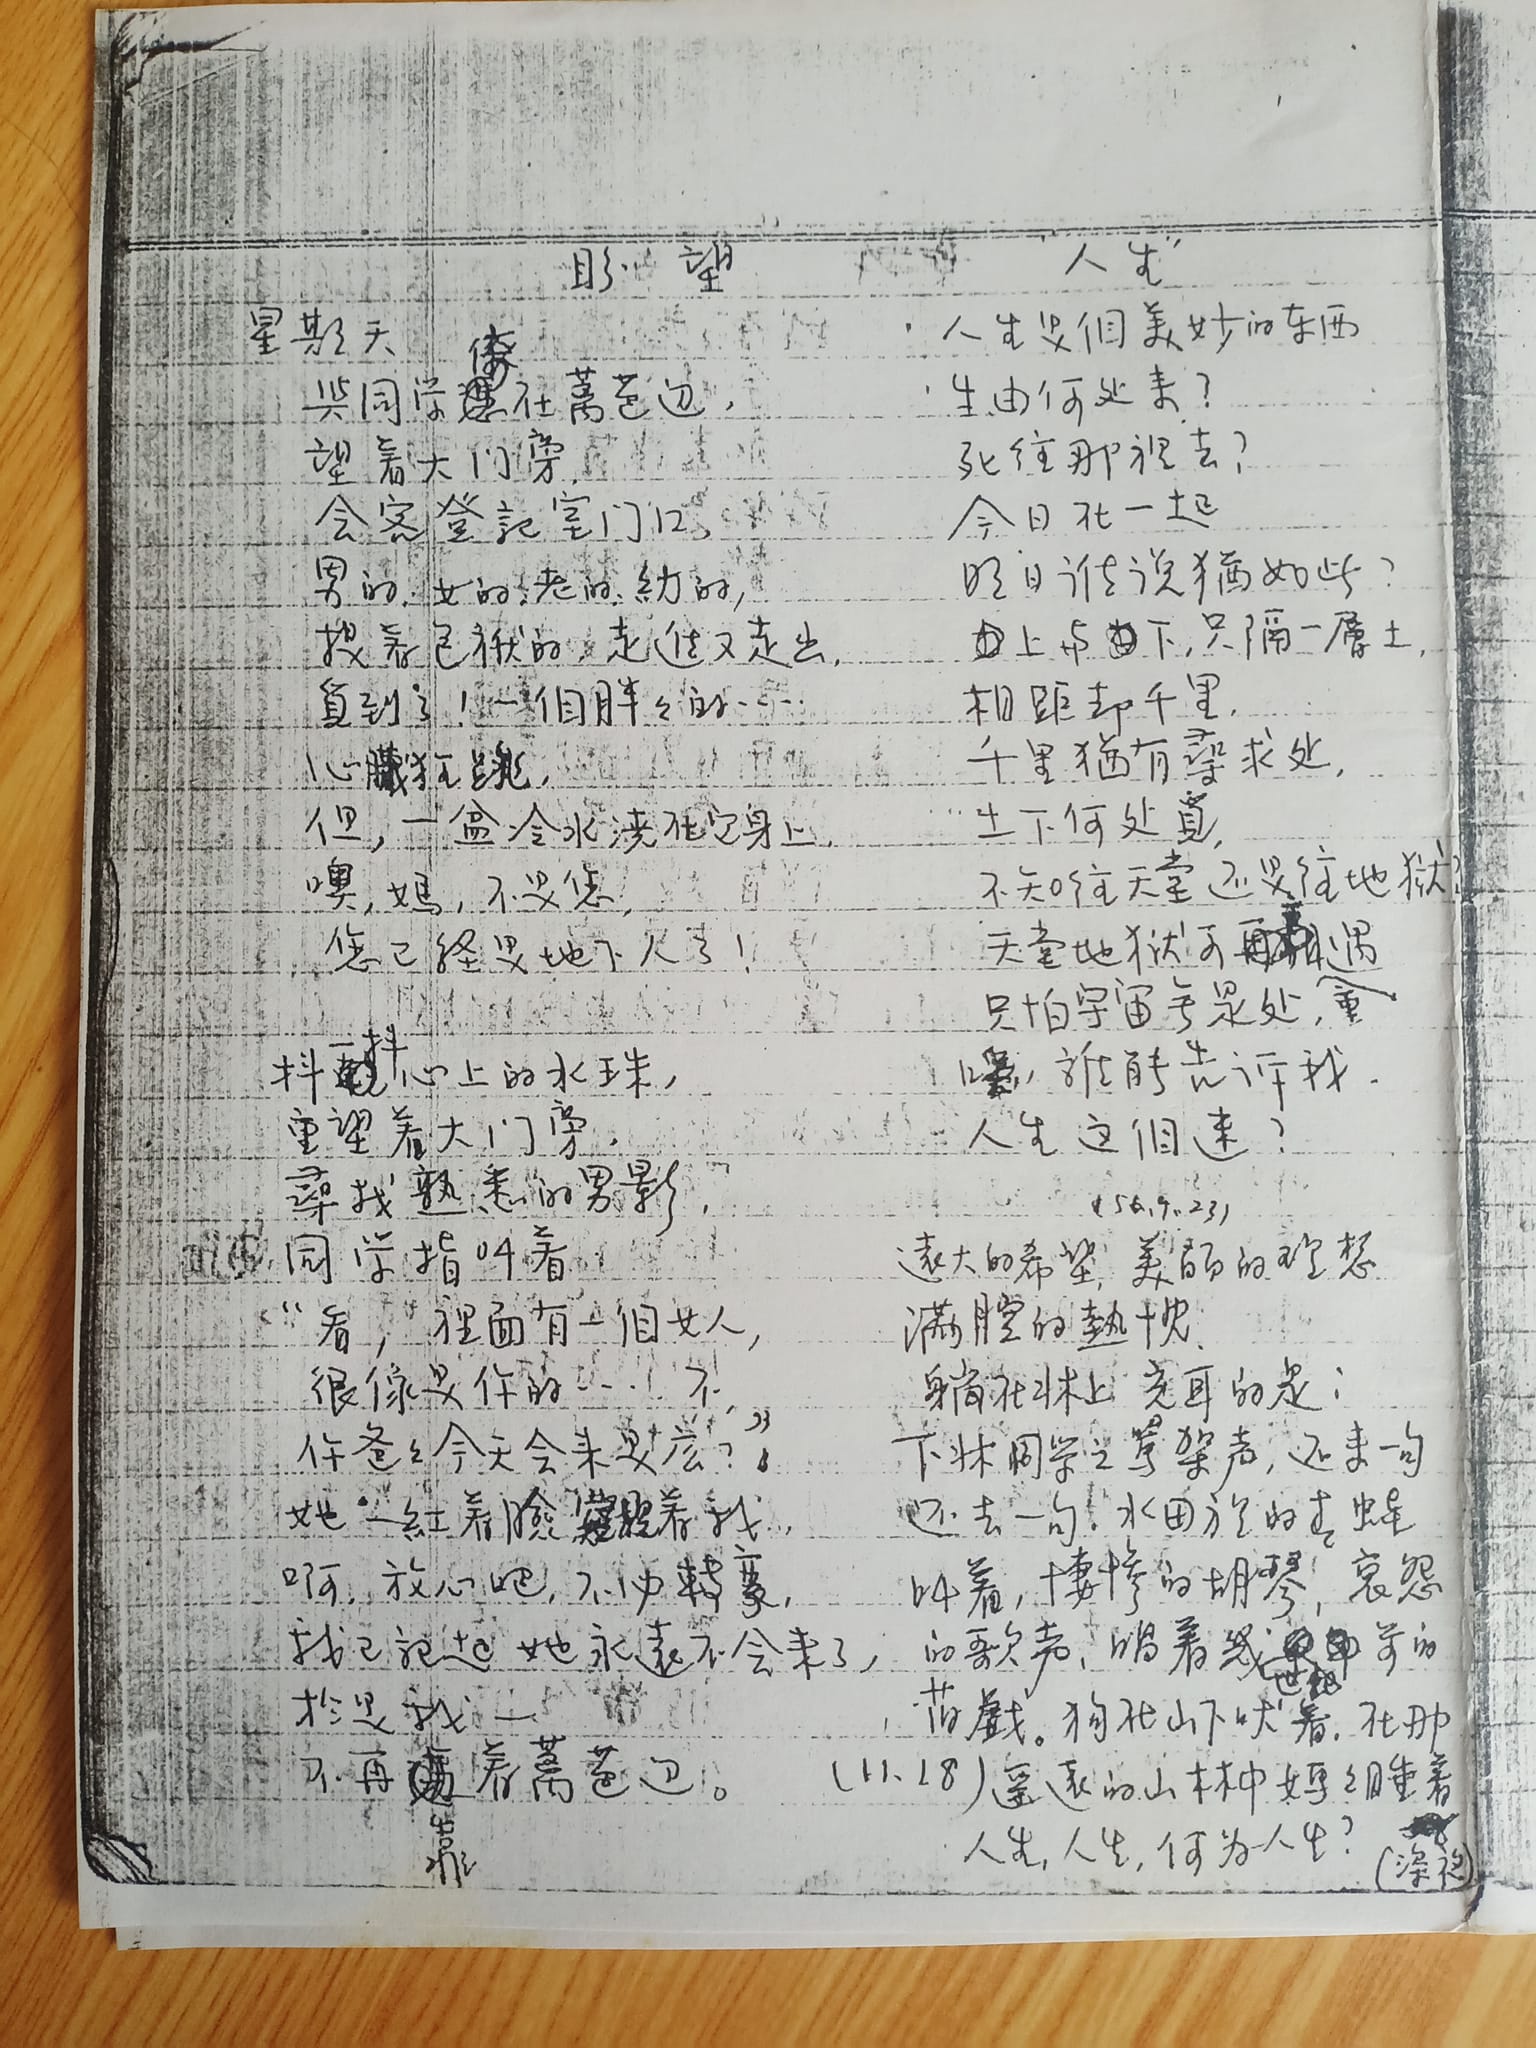 盼望
星期天
與同学傍在蒿芭边,
望着大门旁,
会客登記室门口,
男的,女的,老的,幼的,
提着包袱的,走進又走出,
看到了!一個胖々的……
心臟狂跳,
但,一盆冷水澆在它身上,
噢,媽,不是您,
您已経是地下人了!
抖一抖心上的水珠,
重望着大门旁,
尋找熟悉的男影,
同学指叫着
“看,裡面有一個女人,
很像是你的……不,
你爸々今天会来是么?”
她一紅着臉 着我,
啊,放心吧,不必轉彎,
我已記起她永遠不会来了,
於是我—
不再靠着蒿芭边。 (11.18)
“人生”
人生是個美妙的东西
生由何处来?
死往那裡去?
今日在一起
明日谁说猶如此?
上与下,只隔一層土,
相距却千里,
千里猶有尋求处,
土下何处覓,
不知往天堂还是往地狱?
天堂地狱可再重遇
只怕宇宙无是处,
噢,誰能告訴我
人生这個迷?
(56.9.23)
遠大的希望,美麗的理想
滿腔的熱忱,
躺在牀上 充耳的是:
下牀同学之罵架声,还来一句
还去一句。水田旁的青蛙
叫着,悽惨的胡琴,哀怨
的歌声,唱着幾世紀前的
苗戲。狗在山下吠着,在那
遥遠的山林中媽々睡着
人生,人生,何为人生?
(深夜)